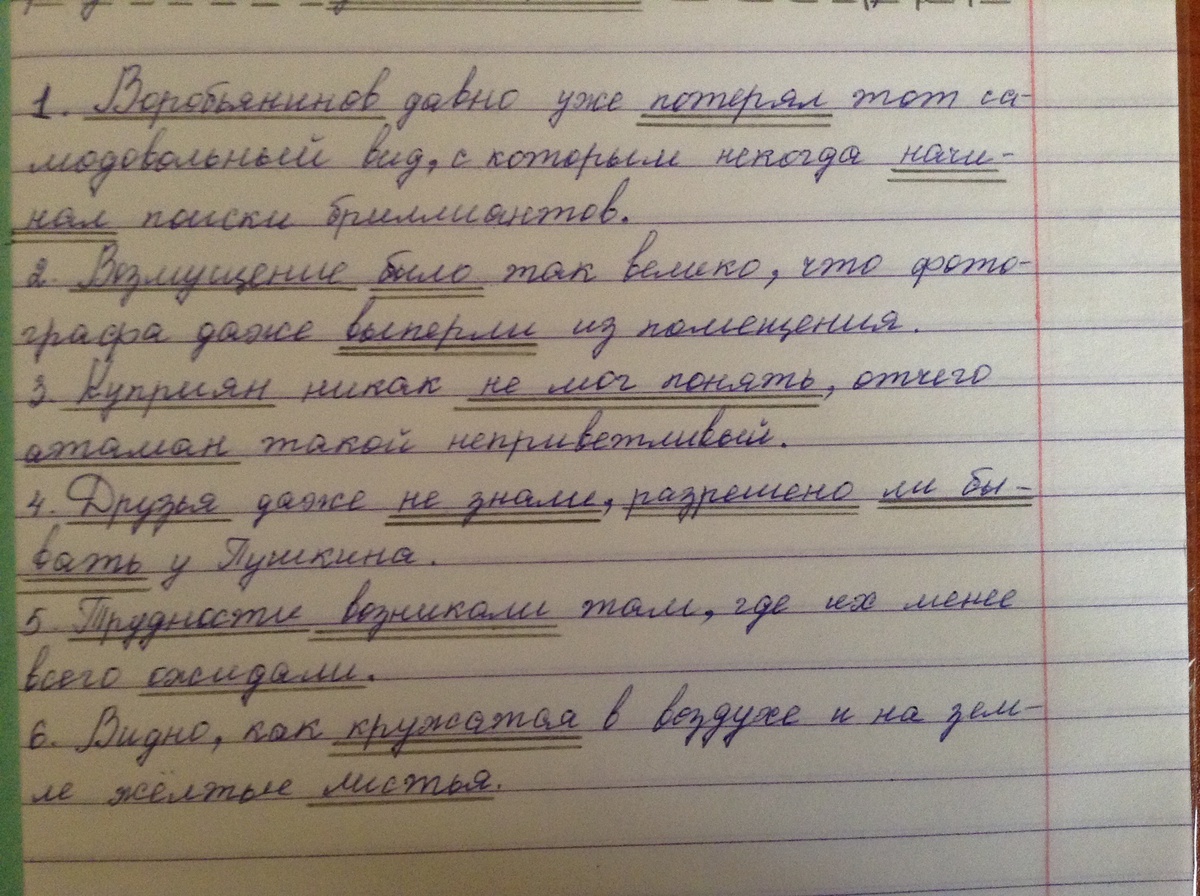 1. Воробьянинов давно уже потерял тот са-
модовольный вид, с которым некогда начи-
нал поиски бриллиантов.
2. Возмущение было так велико, что фото-
графа даже выперли из помещения.
3. Куприян никак не мог понять, отчего
атаман такой неприветливый.
4. Друзья даже не знали, разрешено ли бы-
вать у Пушкина.
5. Трудности возникали там, где их менее
всего ожидали.
6. Видно, как кружатся в воздухе и на зем-
ле жёлтые листья.